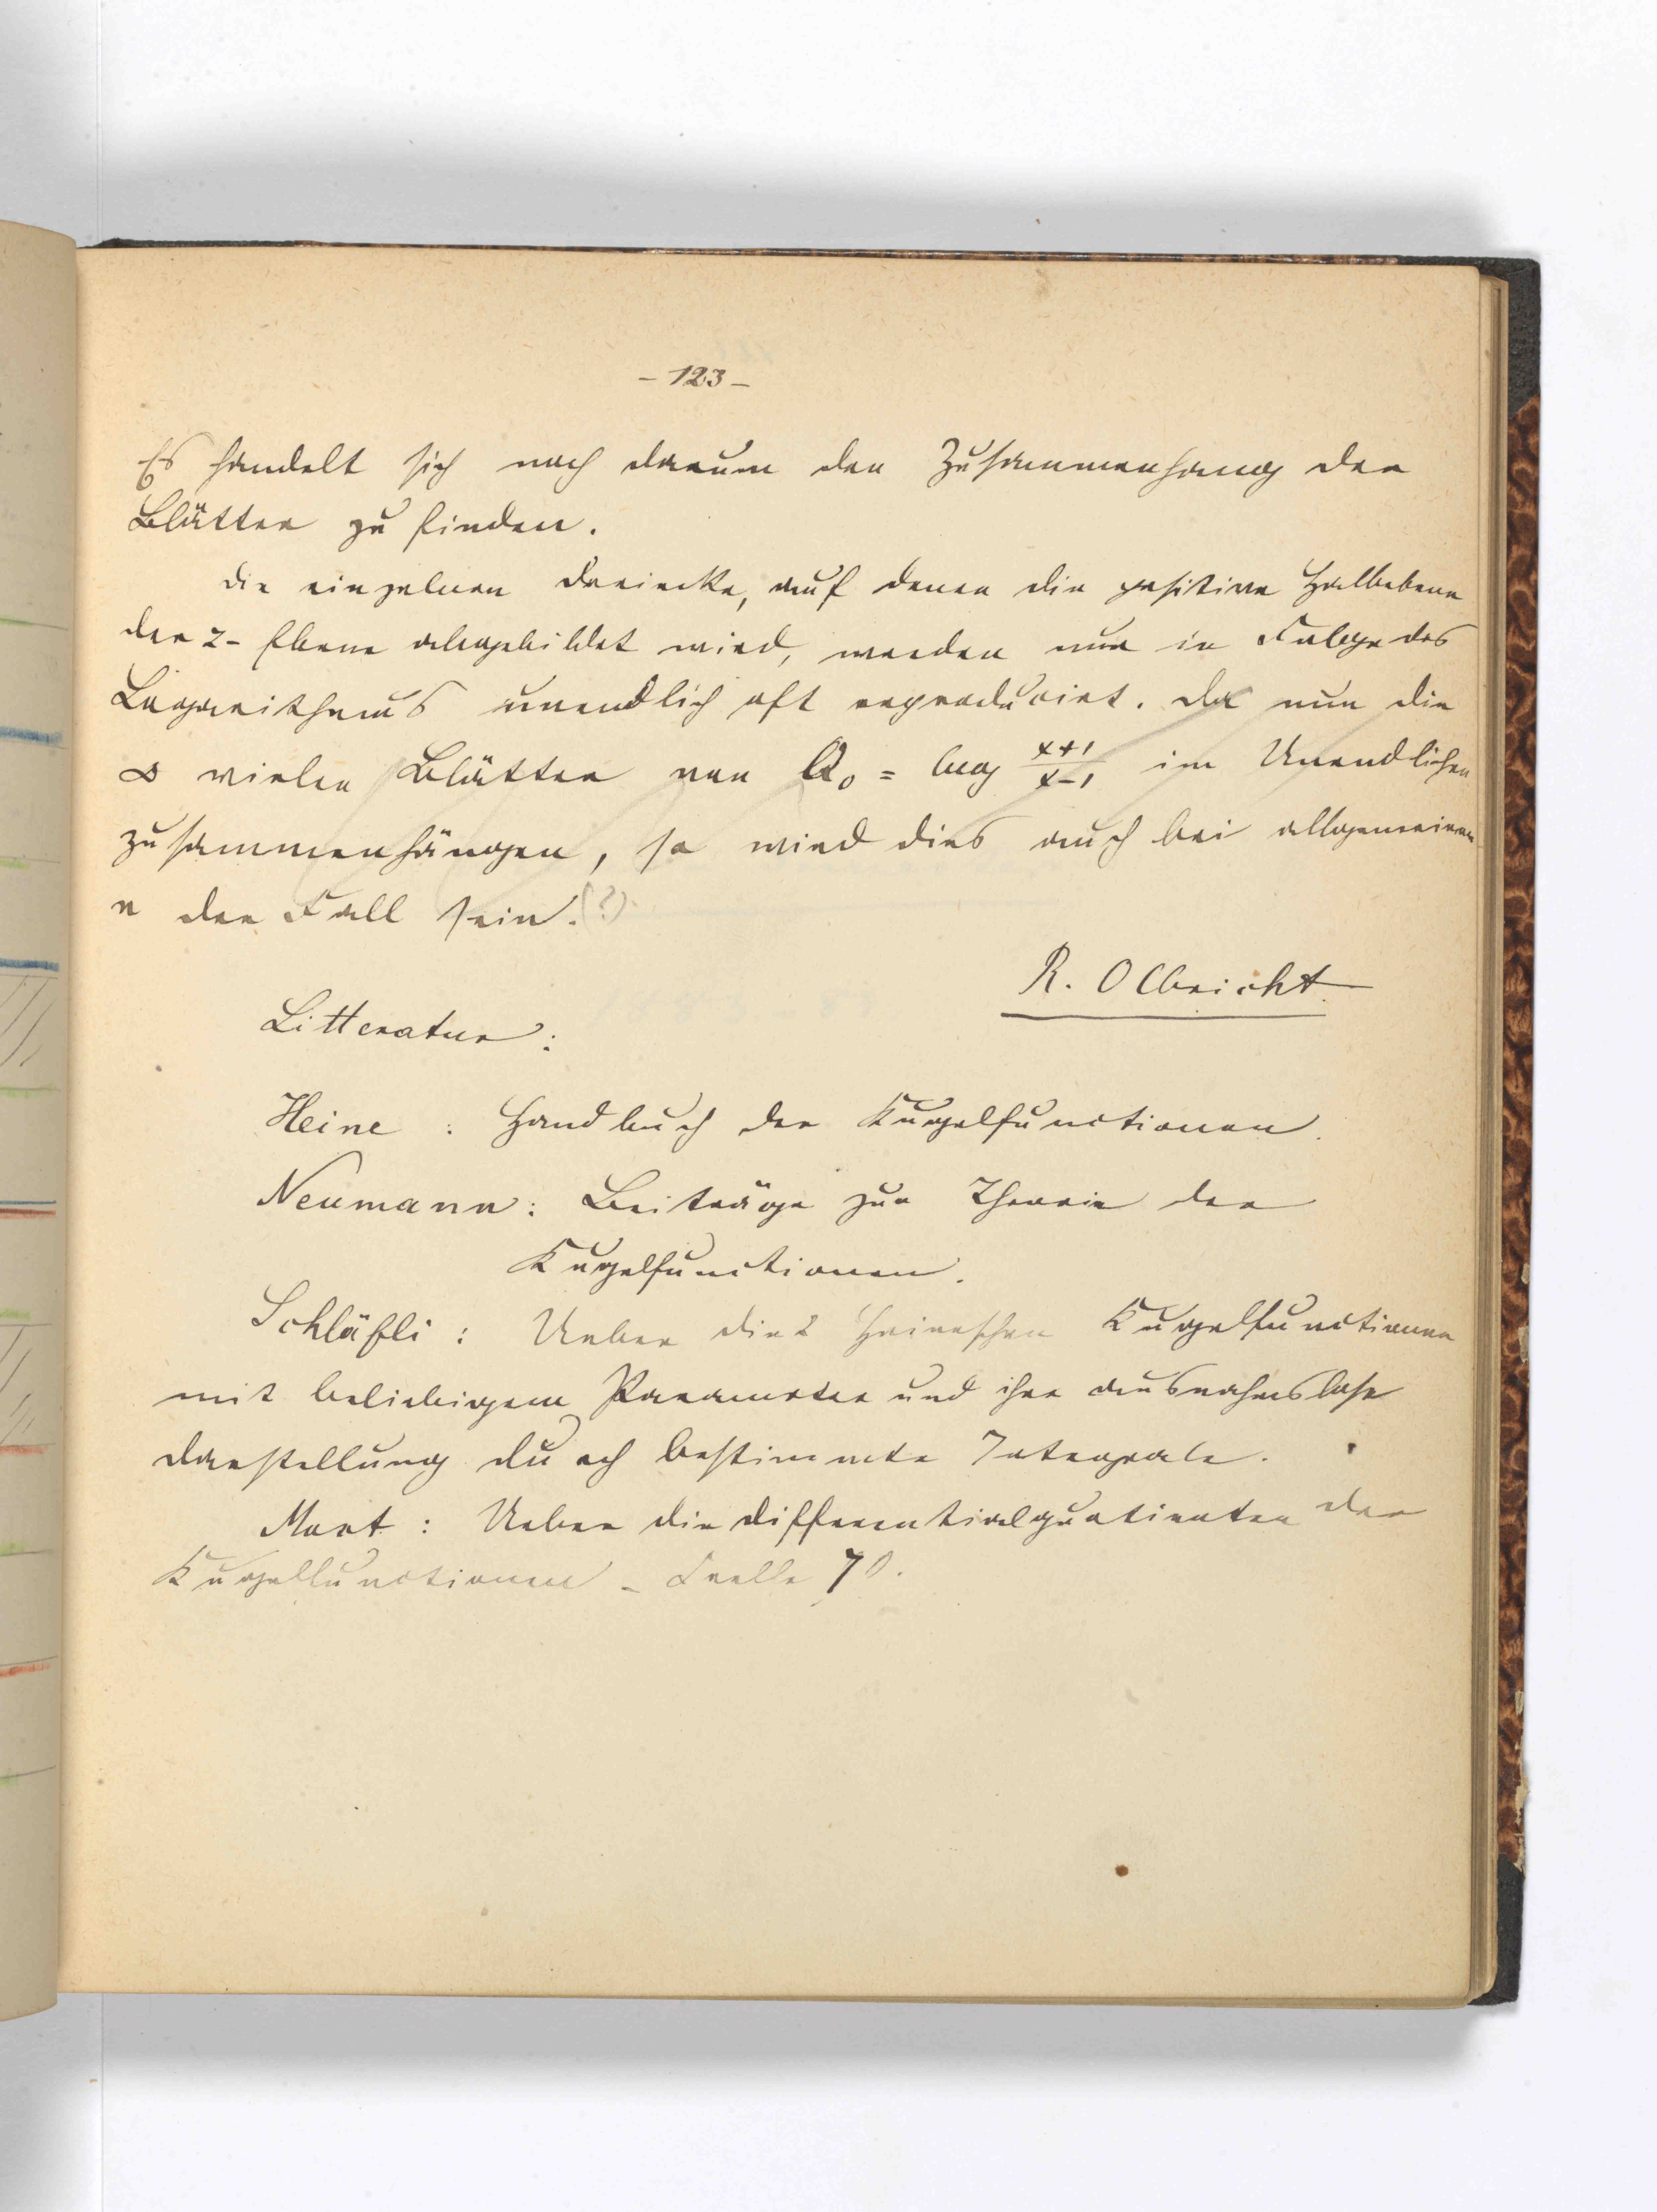 - 123 -
Es handelt sich noch darum den Zusammenhang der
Blätter zu finden.
Die einzelnen Dreiecke, auf denen die positive Halbebene
der z-Ebene abgebildet wird, werden nun in Folge des
Logarithmus unendlich oft reproducirt. Da nun die
∞ vielen Blätter von Q₀ = log (x+1)/(x-1) im Unendlichen
zusammenhängen, so wird dies auch bei allgemeinem
n der Fall sein. (?)
R. Olbricht
Litteratur:
Heine: Handbuch der Kugelfunctionen.
Neumann: Beiträge zur Theorie der
Kugelfunctionen.
Schläfli: Ueber die 2 Heineschen Kugelfunctionen
mit beliebigem Parameter und ihre ausnahmslose
Darstellung durch bestimmte Integrale.
Ueber die Differentialquotienten der
Kugelfunctionen - Crelle 70.